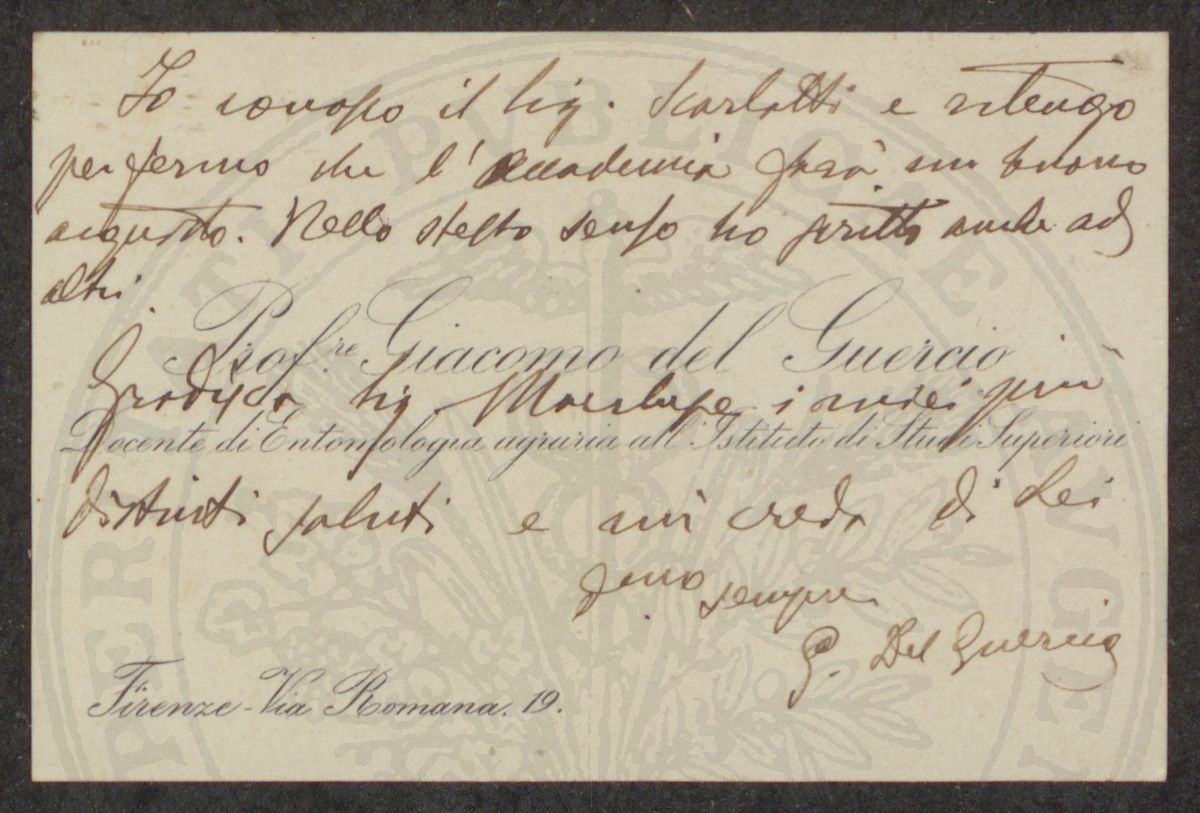 Io conosco il Sig. Scarlatti e ritengo
per fermo che l'Accademia farà un buono
acquisto. Nello stesso senso ho scritto anche ad
altri.
Prof.re Giacomo del Guercio
Gradisca Sig. i miei più
Docente di Entomologia agraria all'Istituto di Studi Superiori
distinti saluti e mi creda di Lei
sempre
G. Del Guercio
Firenze - Via Romana. 19.